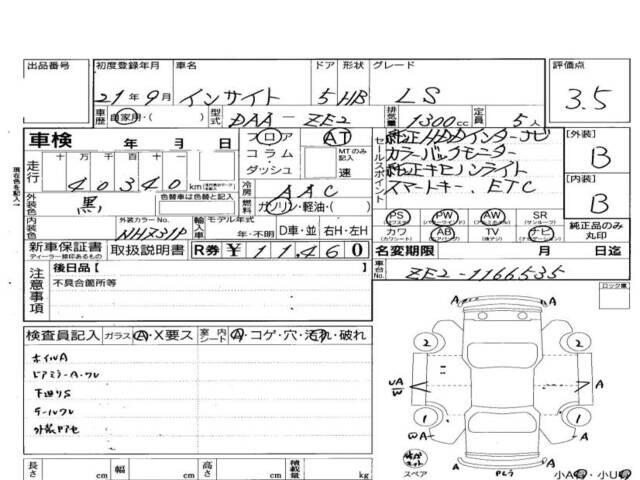 出品番号 初度登録年月 車名 ドア 形状 グレード 評価点
21年9月 インサイト 5 HB LS 3.5
車歴 自家用・( ) 型式 DAA-ZE2 排気量 1300cc 定員 5人
車検 年 月 日 フロア AT
コラム・ダッシュ MTのみ記入 速
セールスポイント
純正HDDインターナビ
カラーバックモニター
純正キセノンライト
スマートキー、ETC
[外装] B
[内装] B
現状色を記入
走行 十 万 千 百 十
40340 km
冷房 AAC
外装色 黒 色替車は色替と記入 燃料 ガソリン・軽油・( )
内装色 外装カラーNo. NHZ31P 輸入車 モデル年式 年・不明 D車・並 右H・左H
PS PW AW SR
(パワステ) (パワーウインドウ) (アルミホイル) (サンルーフ)
カワ AB TV ナビ
(カワシート) (エアバック) (後タジ) (ナビゲーション)
純正品のみ丸印
新車保証書 取扱説明書 R券 ¥11,460
ディーラー捺印あるもの
名変期限 月 日迄
車台No. ZE2-1166535
注意事項
後日品[ ]
不具合箇所等
ロック車
検査員記入 ガラス A・X要ス 室内シート A・コゲ・穴・汚れ・破れ
ホイルA
ドアミラーA・ワレ
下廻りS
テールワレ
外装アセ
A A
2 2
UA
W A A
1 1
A A
スペア
小A 小U
長さ cm 幅 cm 高さ cm 積載量 kg